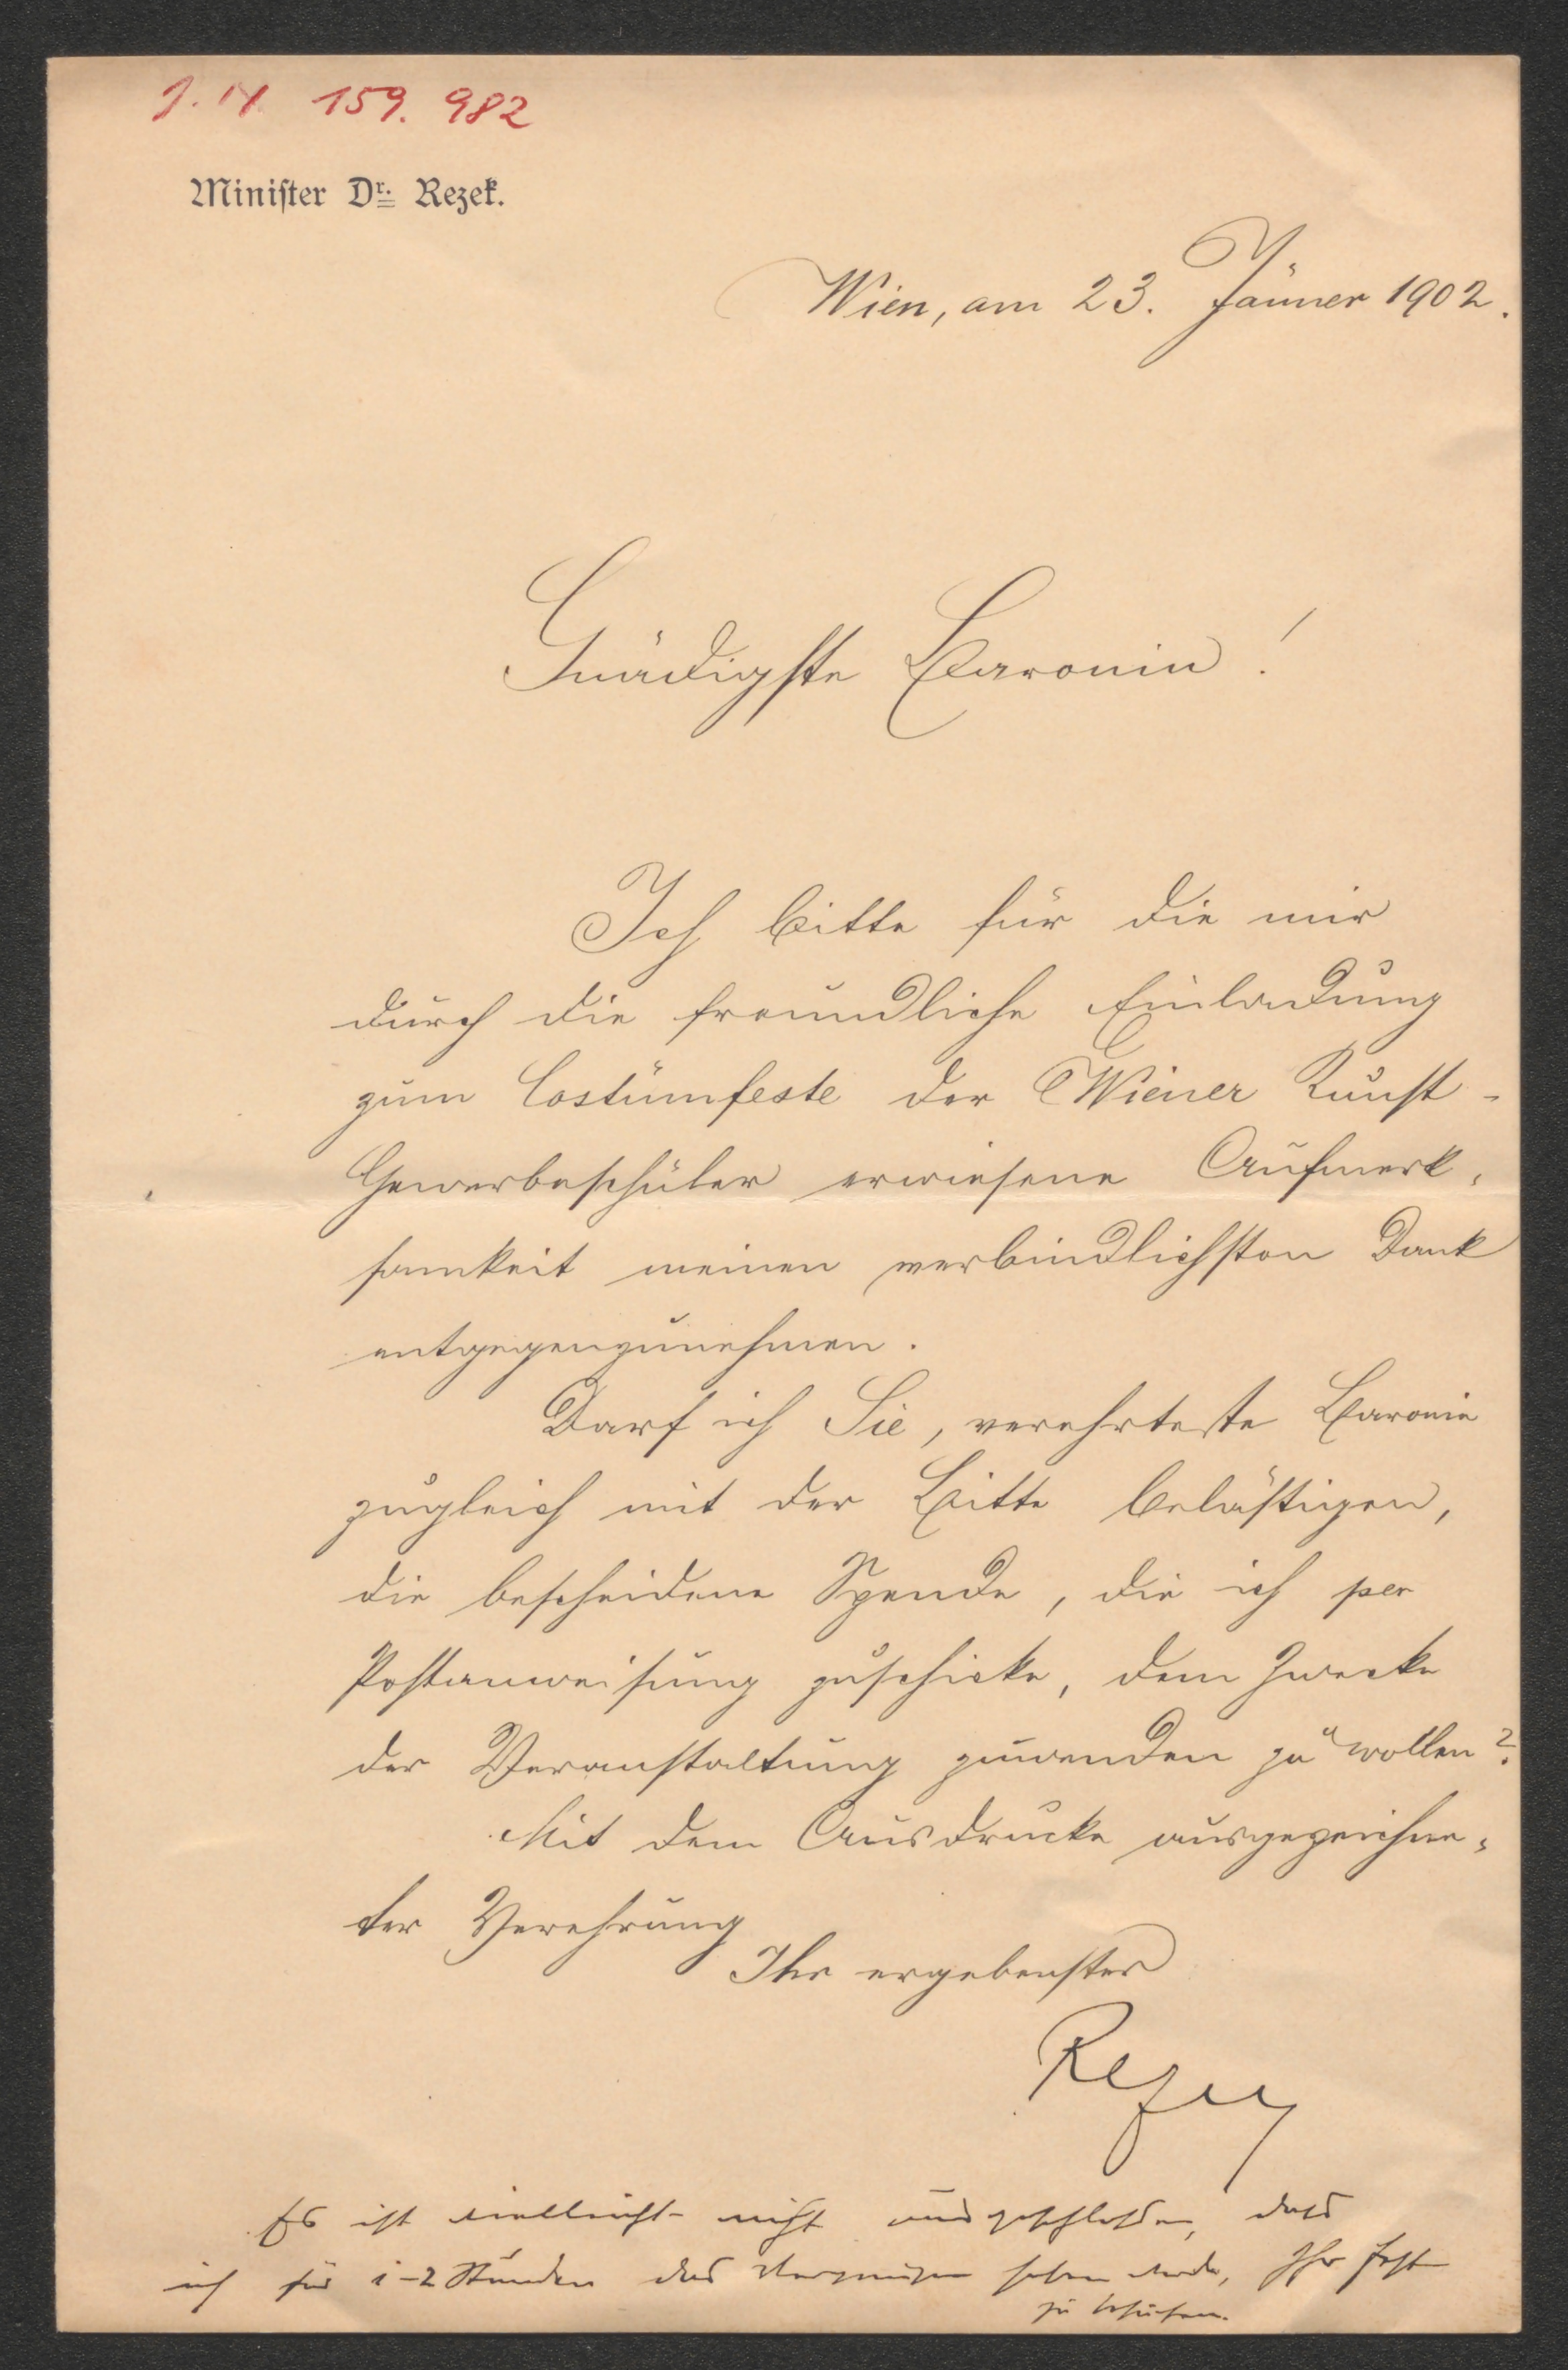 J. N. 159.982
Minister Dr. Rezek.
Wien, am 23. Jänner 1902.
Gnädigste Baronin!
Ich bitte für die mir
durch die freundliche Einladung
zum Costümfeste der Wiener Kunst-
Gewerbeschüler erwiesene Aufmerk-
samkeit meinen verbindlichsten Dank
entgegenzunehmen.
Darf ich Sie, verehrteste Baronin
zugleich mit der Bitte belästigen,
die bescheidene Spende, die ich per
Postanweisung zuschicke, dem Zwecke
der Veranstaltung zuwenden zu wollen?
Mit dem Ausdrucke ausgezeichne-
ter Verehrung
Ihr ergebenster
Rezek
Es ist vielleicht nicht ausgeschlossen, dass
ich für 1-2 Stunden das Vergnügen haben werde, Ihr Fest
zu besuchen.